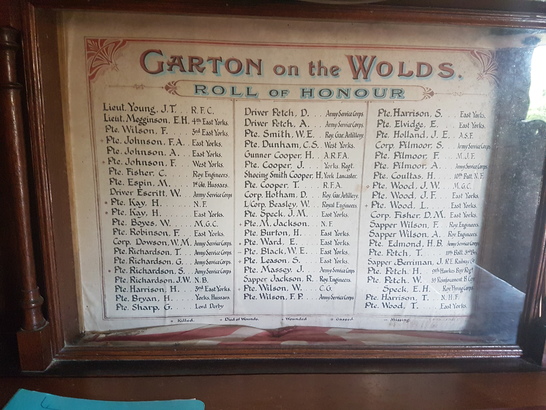 GARTON ON THE WOLDS.
ROLL OF HONOUR
Lieut. Young, J.T. R.F.C.
Lieut. Megginson, E.H. 4th East Yorks.
Pte. Wilson, F. 3rd East Yorks.
Pte. Johnson, F.A. East Yorks.
Pte. Johnson, A. East Yorks.
Pte. Johnson, F. West Yorks.
Pte. Fisher, C. Roy Engineers
Pte. Espin, M.
Driver Escritt, W. Army Service Corps
Pte. Kay, H. N.F.
Pte. Kay, H. East Yorks.
Pte. Boyes, W. M.G.C.
Pte. Robinson, F. East Yorks.
Corp. Dowson, W.M. Army Service Corps
Pte. Richardson, T. Army Service Corps
Pte. Richardson, G. Army Service Corps
Pte. Richardson, S. Army Service Corps
Pte. Richardson, J.W. N.B.
Pte. Harrison, H. 3rd East Yorks
Pte. Bryan, H. Yorks. Hussars
Pte. Sharp, G. Lord Derby
Driver Fetch, D. Army Service Corps
Driver Fetch, A. Army Service Corps
Pte. Smith, W.E. Roy. Gar. Artillery
Pte. Dunham, C.S. West Yorks.
Gunner Cooper, H. A.R.F.A.
Pte. Cooper, J. Yorks. Regt.
Shoeing Smith Cooper, H. York Lancaster
Pte. Cooper, T. R.F.A.
Corp. Hotham, D. Roy. Gar. Artillery
L/Corp. Beasley, W. Royal Engineers
Pte. Speck, J.M. East Yorks.
Pte. M. Jackson. N.F.
Pte. Burton, H. East Yorks.
Pte. Ward, E. East Yorks.
Pte. Black, W.E. East Yorks.
Pte. Leason, S. East Yorks.
Pte. Massey, J. Army Service Corps
Sapper Jackson, R. Roy Engineers.
Pte. Wilson, W. C.G.
Pte. Wilson, F.P. Army Service Corps
Pte. Harrison, S. East Yorks.
Pte. Elvidge, E. East Yorks.
Pte. Holland, J.E. A.S.F.
Corp. Filmoor, S. Army Service Corps
Pte. Filmoor, F.
Pte. Filmoor, A. Army Service Corps
Pte. Coultas, H.
Pte. Wood, J.W. M.G.C.
Pte. Wood, J.F. East Yorks.
Pte. Wood, L. East Yorks.
Corp. Fisher, D.M. East Yorks.
Sapper Wilson, F. Roy Engineers
Sapper Wilson, A. Roy Engineers.
Pte. Edmond, H.B. Army Service Corps
Pte. Fetch, T.
Sapper Berriman, J.
Pte. Fetch, H.
Pte. Fetch, W.
Speck, E.H. Roy Flying Corps
Pte. Harrison, T.
Pte. Wood, T. East Yorks.
Killed. Died of Wounds. Wounded Gassed Missing